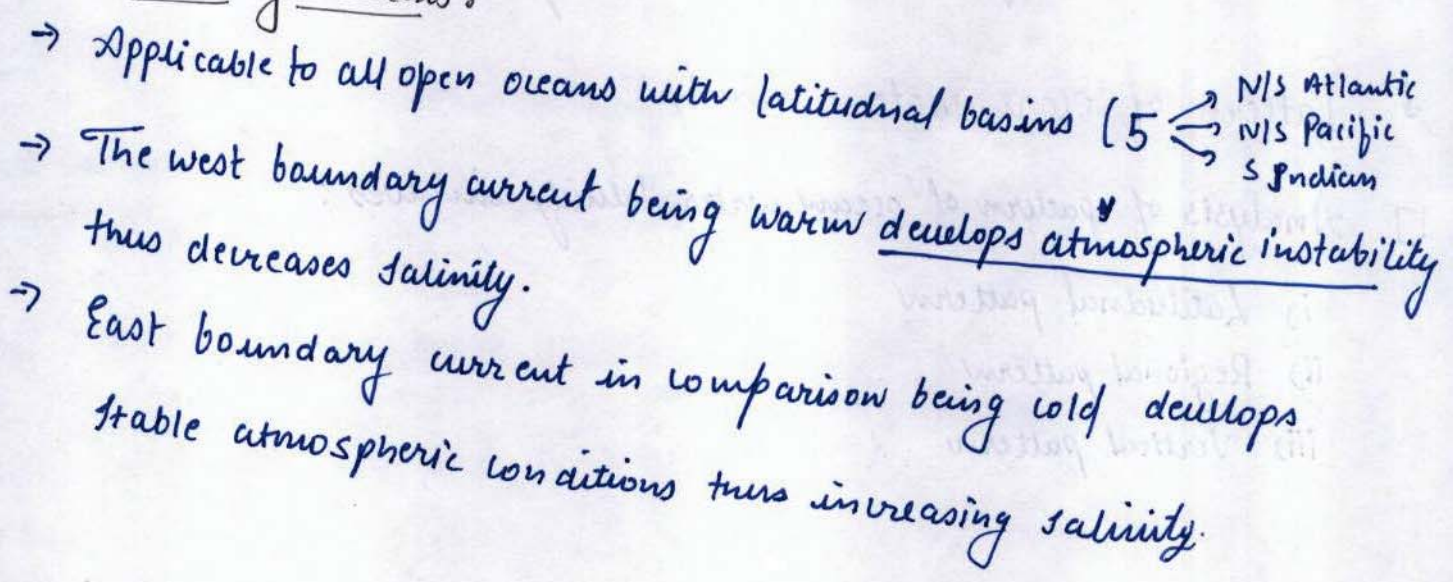 → Applicable to all open oceans with latitudnal basins (5 → N/S Atlantic
→ N/S Pacific
→ S Indian
→ The west boundary current being warm develops atmospheric instability
thus decreases salinity.
→ East boundary current in comparison being cold develops
stable atmospheric conditions thus increasing salinity.
i) Latitudnal pattern
ii) Regional pattern
iii) Vertical pattern